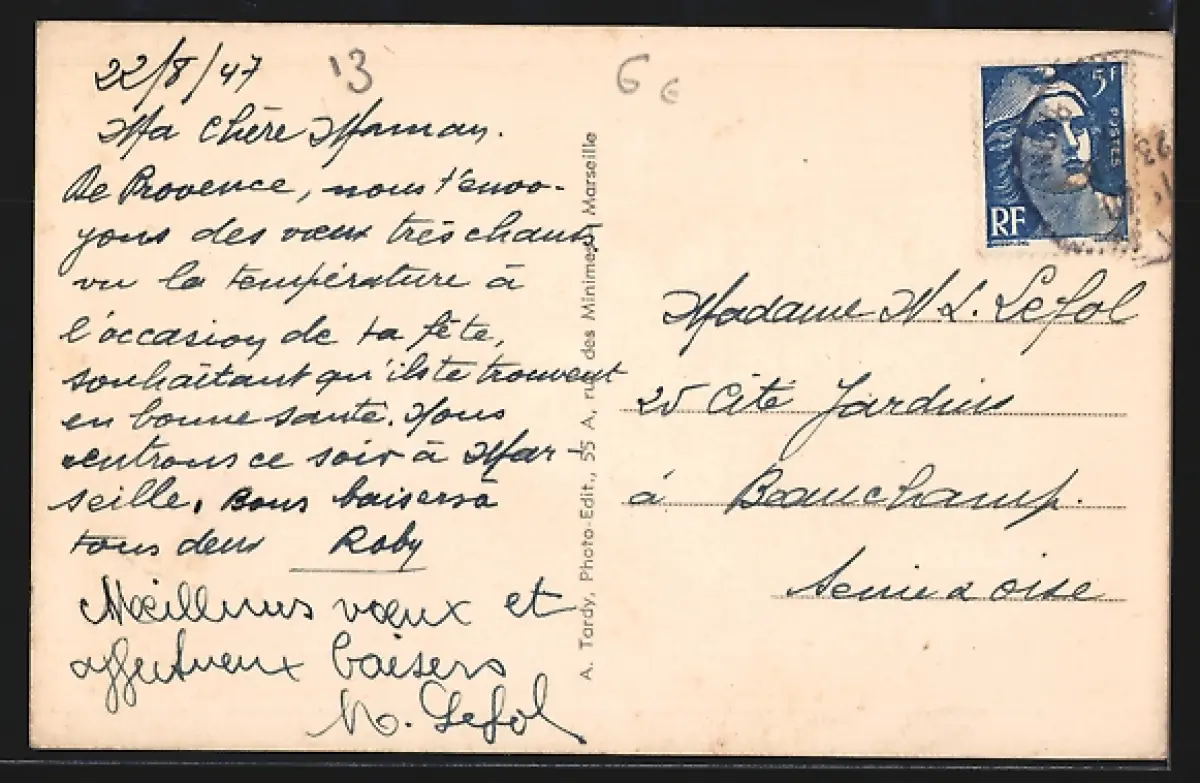 22/8/47
13
6 6
Ma chère Maman.
De Provence, nous t'envo-
yons des vœux très chauds
vu la température à
l'occasion de ta fête,
souhaitant qu'ils te trouvent
en bonne santé. Nous
rentrons ce soir à Mar-
seille. Bons baisers à
tous deux Roby
Meilleurs vœux et
affectueux baisers
M. Lefol
A. Tardy, Photo-Edit., 55 A, rue des Minimes, Marseille
5f
POSTES
RF
23
Madame M. L. Lefol
25 Cité Jardins
à Beauchamp.
Seine & oise